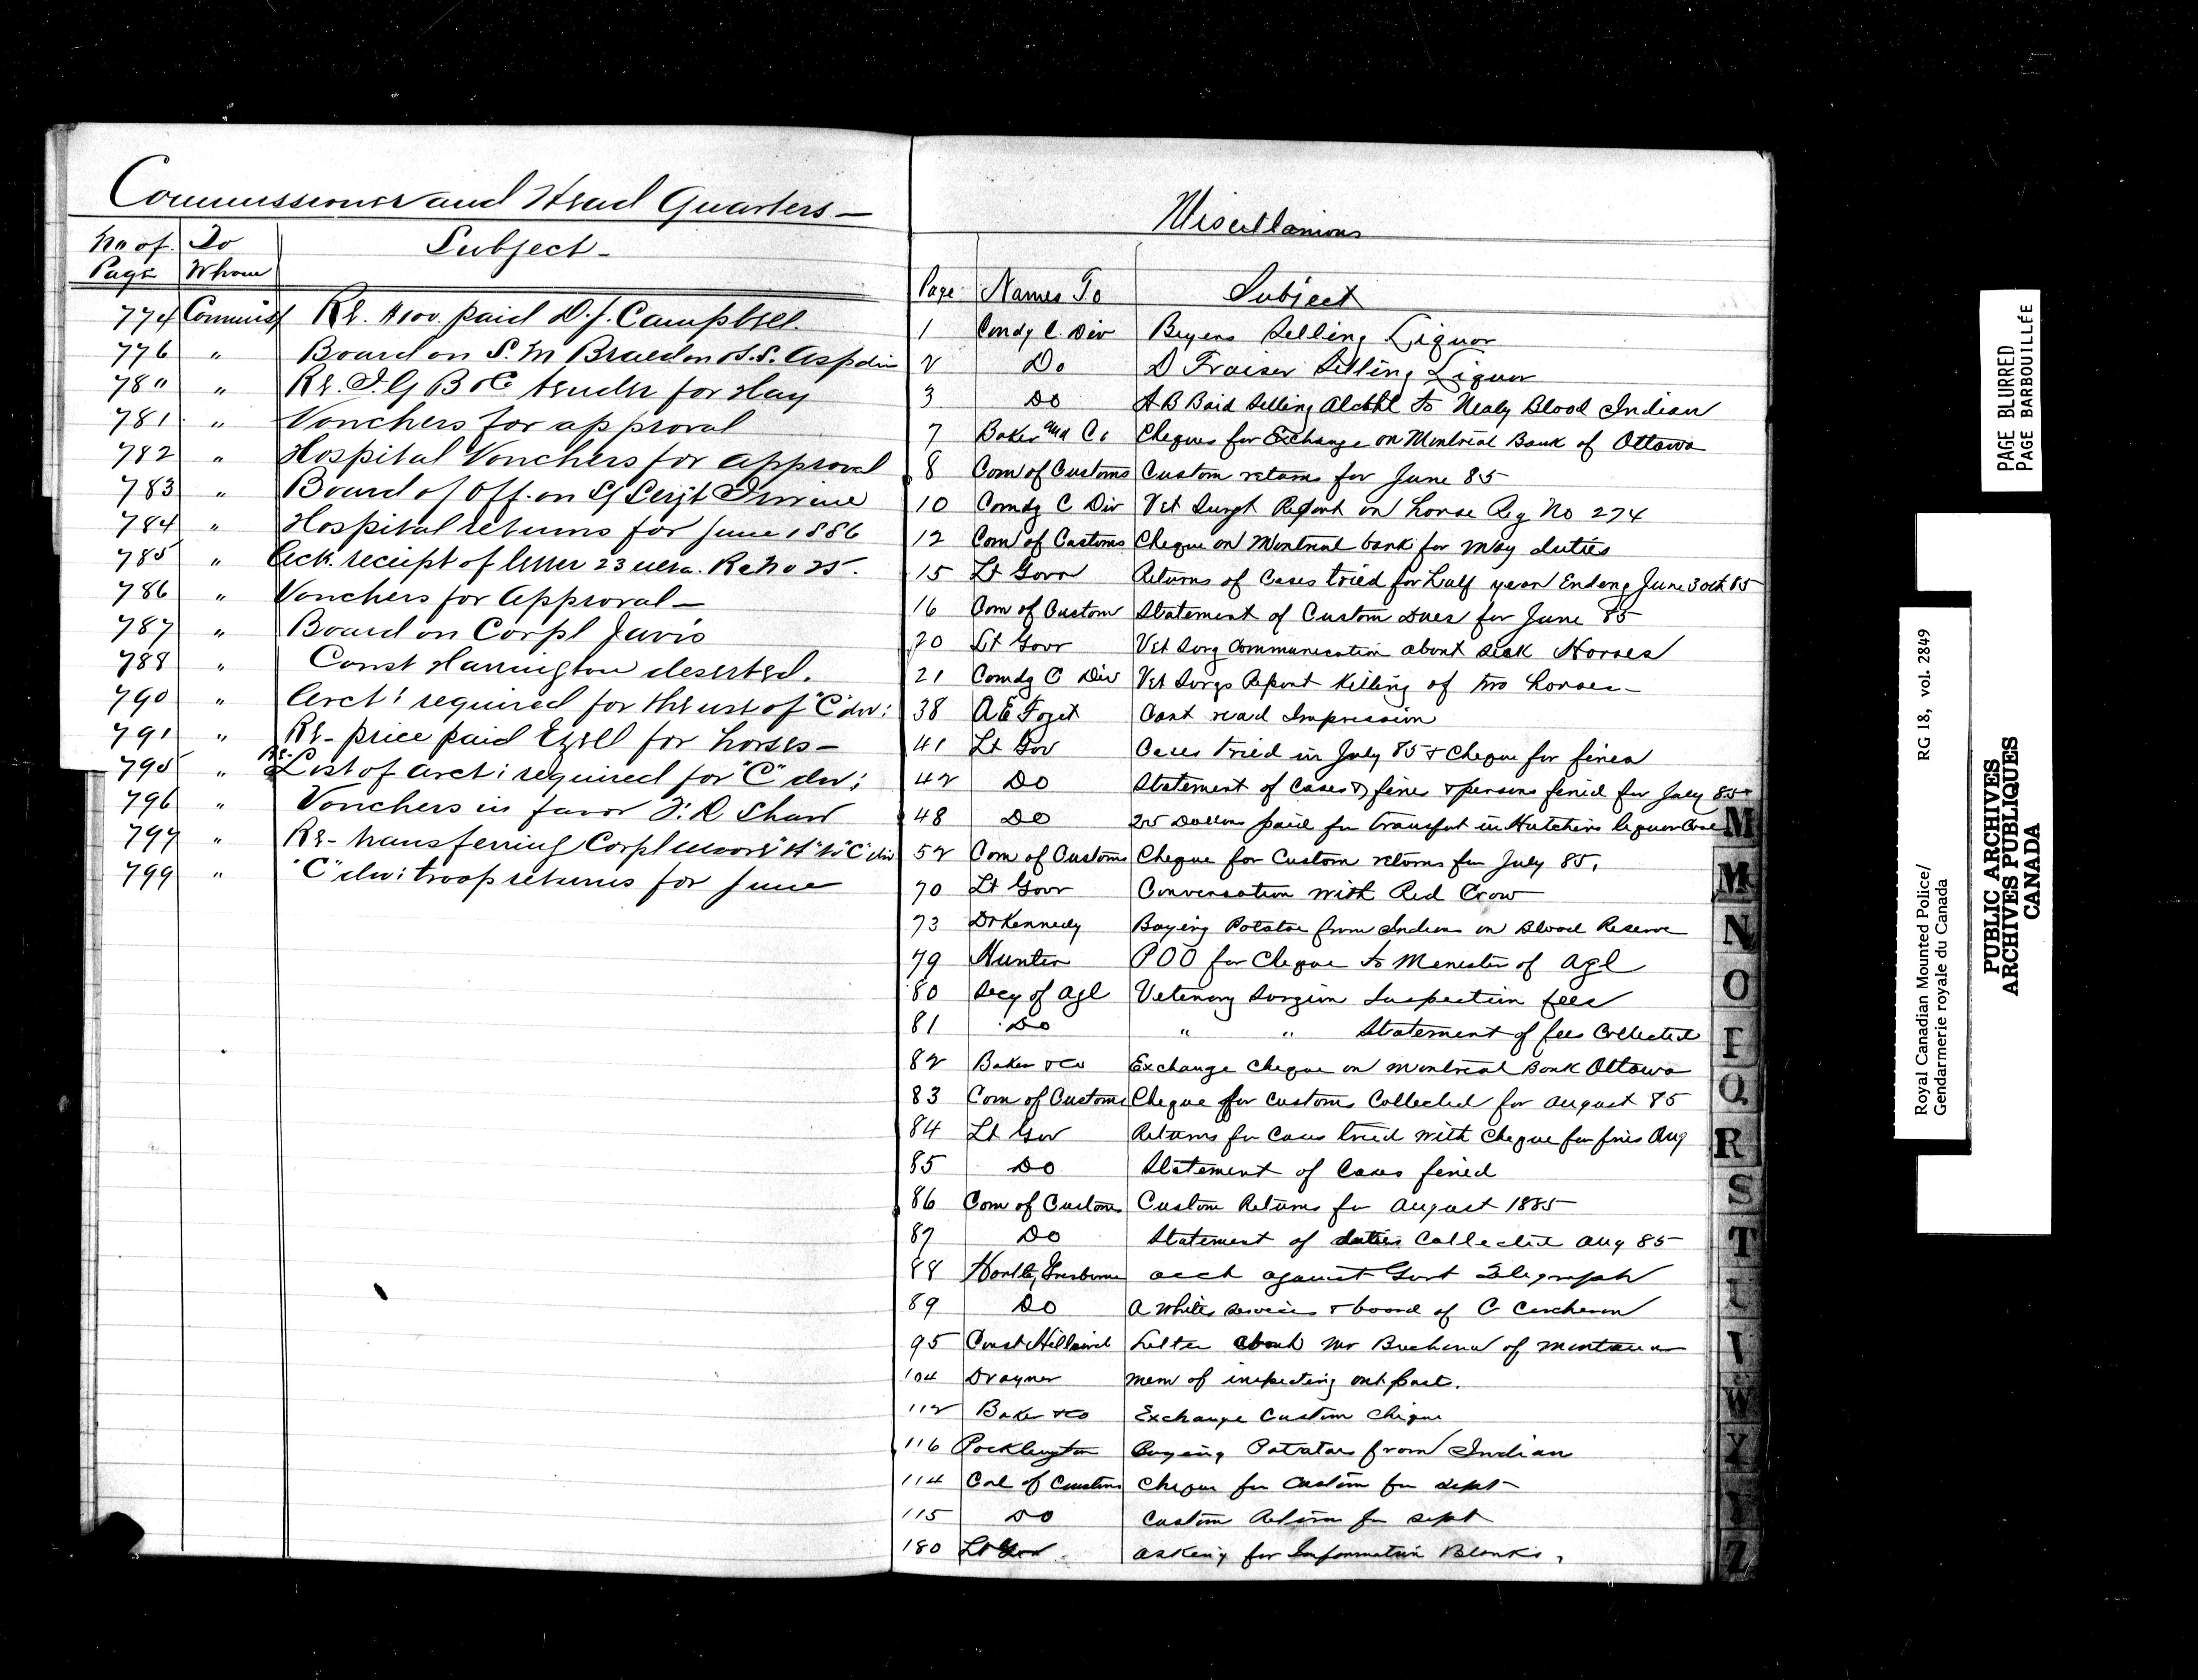 Commissioner and Head Quarters —
No of Page To Whom Subject -
774 Commiss Re. $100. paid D. J. Campbell.
776 " Board on S. M Braedon S.S. Aspdin
780 " Re. I. G B & Co tender for Hay
781 " Vouchers for approval
782 " Hospital Vouchers for approval
783 " Board of Off. on Sergt Irvine
784 " Hospital returns for June 1886
785 " Ack. receipt of letter 23 Re No 25.
786 " Vouchers for Approval —
787 " Board on Corpl Jarvis
788 " Const Harrington deserted.
790 " Arct: required for the use of "C" div:
791 " Re - price paid Ezell for horses —
795 " Re- List of arct: required for "C" div:
796 " Vouchers in favor F. R Shaw
797 " Re - transferring Corpl Moore "H" to "C" div
799 " "C" div: troop returns for June
Miscellanious
Page Names To Subject
1 Comdg C. Div Beyers Selling Liquor
2 Do D Fraiser Selling Liquor
3 Do A B Baid Selling Alcohl to Nealy Blood Indian
7 Baker and Co Cheques for Exchange on Montreal Bank of Ottawa
8 Com of Customs Custom returns for June 85
10 Comdg C Div Vet Surgt Report on horse Reg No 274
12 Com of Customs Cheque on Montreal bank for May duties
15 Lt Govr Returns of Cases tried for half year Ending June 30th 85
16 Com of Custom Statement of Custom Dues for June 85
20 Lt Govr Vet Surg Communication about sick Horses
21 Comdg C Div Vet Surgs Report Killing of two horses —
38 A E Foget Cant read Impression
41 Lt Gov Cases tried in July 85 & Cheque for fines
42 Do Statement of Cases & fines & persons fined for July 85
48 Do 25 Dollars paid for transport in Hutchins liquor Case
52 Com of Customs Cheque for Custom returns for July 85.
70 Lt Govr Conversation with Red Crow
73 Dr Kennedy Buying Potatoe from Indians on Blood Reserve
79 Hunter P O O for Cheque to Menester of Agl
80 Secy of Agl Vetenary Surgion Inspection fees
81 Do " " Statement of fees Collected
82 Baker & Co Exchange Cheque on Montreal Bank Ottawa
83 Com of Customs Cheque for Customs Collected for August 85
84 Lt Gov Returns for Cases tried with Cheque for fines Aug
85 Do Statement of Cases fined
86 Com of Customs Custom Returns for August 1885
87 Do Statement of duties Collected Aug 85
88 acct against Govt Telegraph
89 Do A White services & board of C
95 Const Letter about Mr of Montana
104 Drayner mem of inspecting out post.
112 Baker & Co Exchange Custom Cheque
116 Pocklington Buying Potatoes from Indian
114 Col of Customs Cheque for Custom for Sept
115 Do Custom Return for Sept
180 Lt Gov asking for Information Blanks.
M
M
N
O
P
Q
R
S
T
U
V
W
X
Y
Z
PAGE BLURRED
PAGE BARBOUILLÉE
RG 18, vol. 2849
Royal Canadian Mounted Police/
Gendarmerie royale du Canada
PUBLIC ARCHIVES
ARCHIVES PUBLIQUES
CANADA